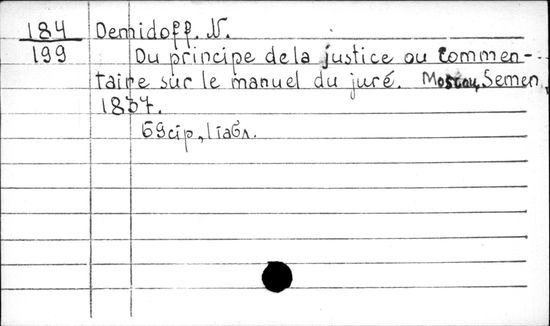 184 Demidoff. N.
199 Du principe de la justice ou Commen-
taire sur le manuel du juré. Moscou, Semen,
1837.
69 стр., 1 табл.